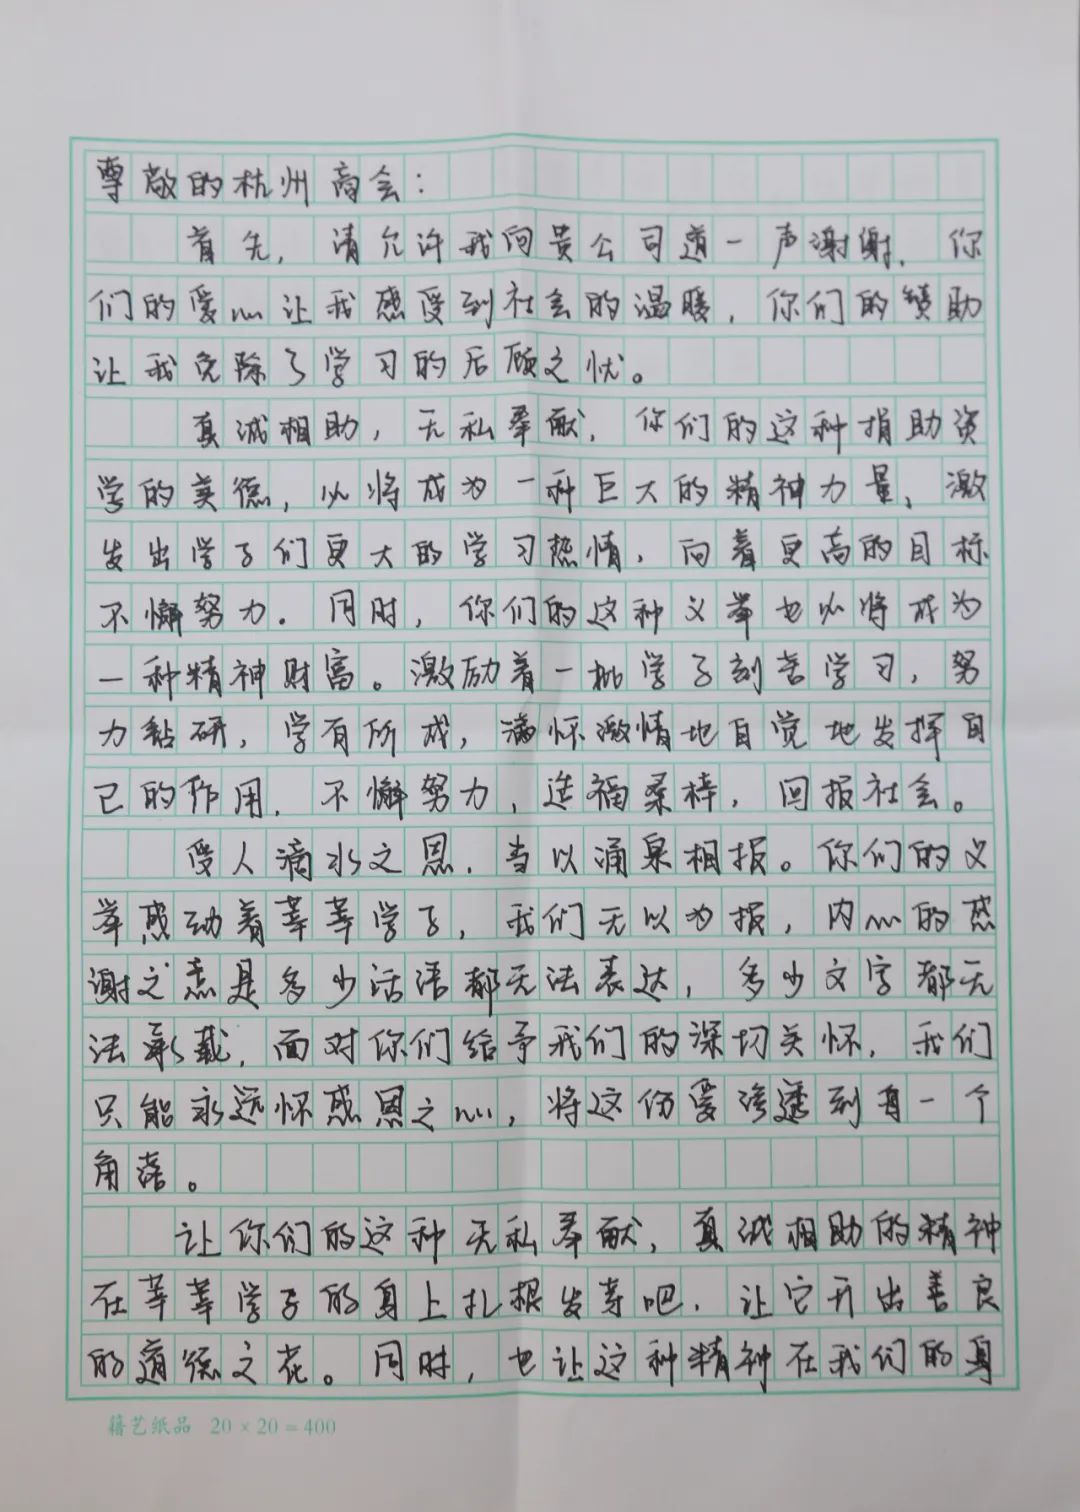 尊敬的杭州商会：
首先，请允许我向贵公司道一声谢谢，你
们的爱心让我感受到社会的温暖，你们的赞助
让我免除了学习的后顾之忧。
真诚相助，无私奉献，你们的这种捐助资
学的美德，必将成为一种巨大的精神力量，激
发出学子们更大的学习热情，向着更高的目标
不懈努力。同时，你们的这种义举也必将成为
一种精神财富。激励着一批学子刻苦学习，努
力钻研，学有所成，满怀激情地自觉地发挥自
己的作用，不懈努力，造福桑梓，回报社会。
受人滴水之恩，当以涌泉相报。你们的义
举感动着莘莘学子，我们无以为报，内心的感
谢之意是多少话语都无法表达，多少文字都无
法承载，面对你们给予我们的深切关怀，我们
只能永远怀感恩之心，将这份爱渗透到每一个
角落。
让你们的这种无私奉献，真诚相助的精神
在莘莘学子的身上扎根发芽吧，让它开出善良
的道德之花。同时，也让这种精神在我们的身
籍艺纸品 20×20=400